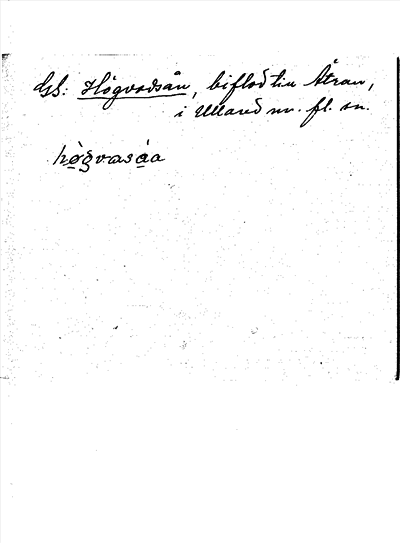 Gsk: Högvadsån, biflod till Ätran,
i Ullared m. fl. sn.
hò̲gvasá̲a